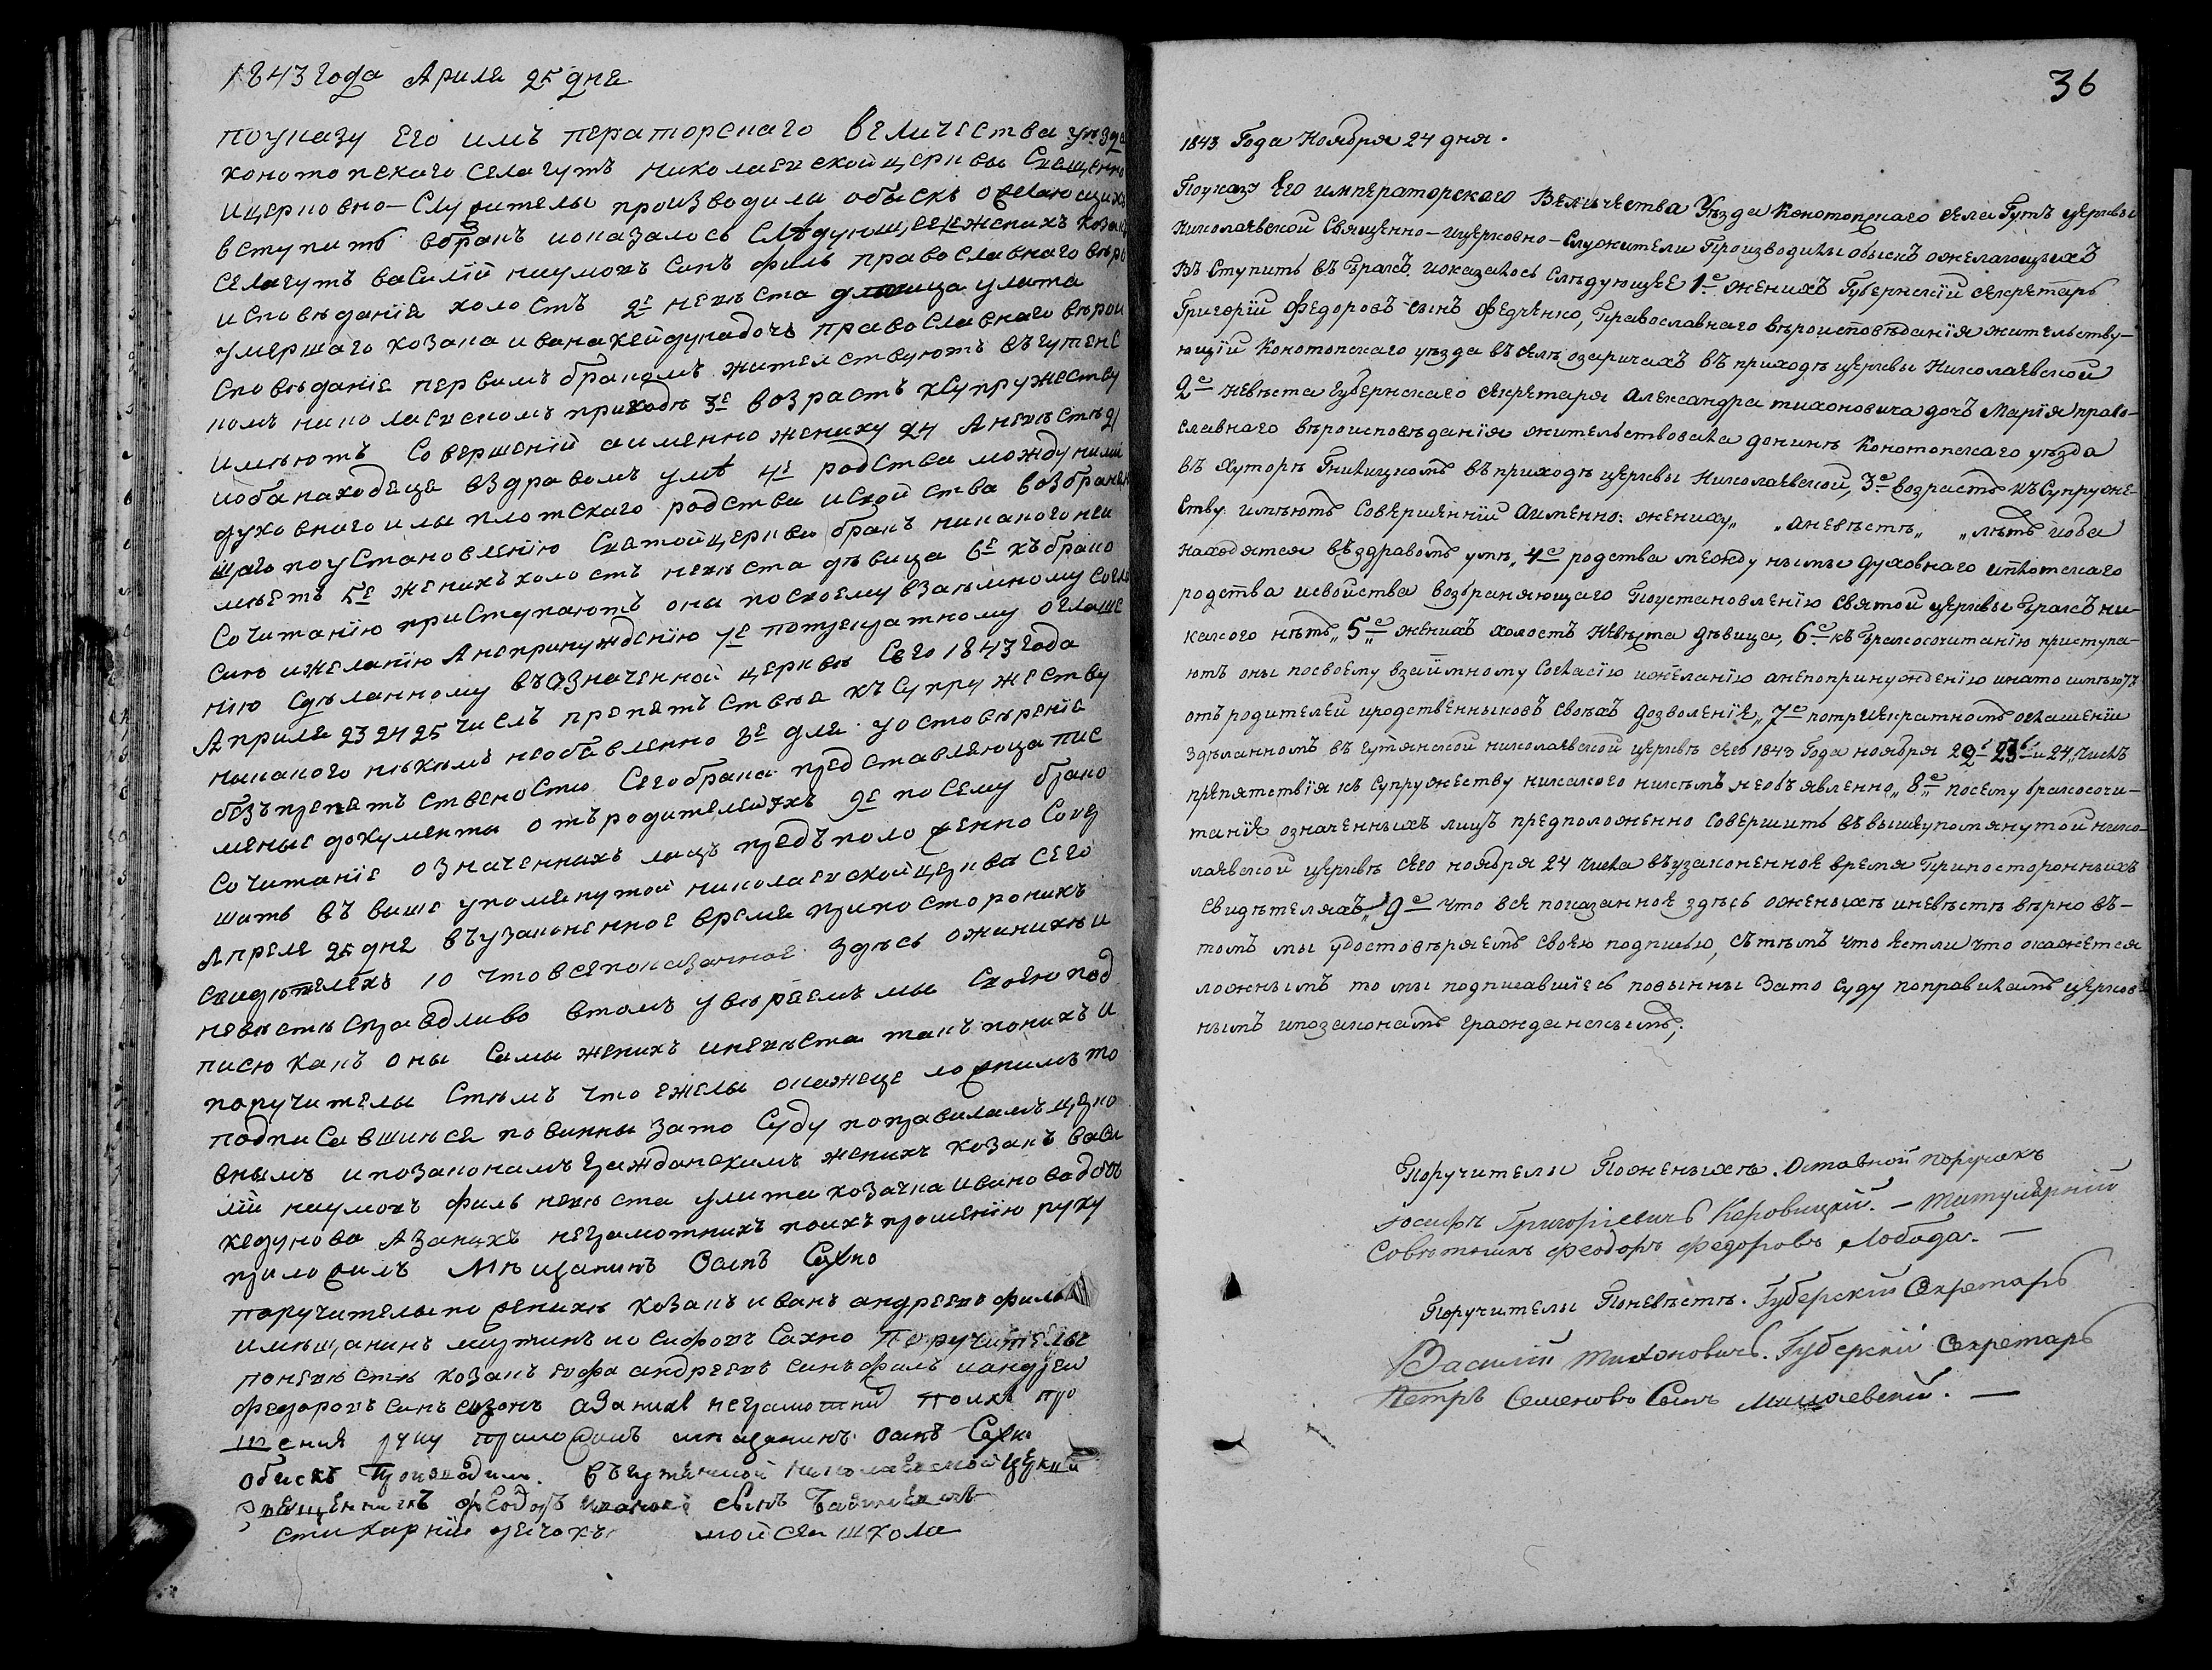 1843 года Априля 25 дня
поуказу Его имъператорскаго величества уѣзда
конотопскаго села гутъ николаевской церквы Священно
ицерковно-Служителы производили обыскъ ожелающихъ
вступить вбракъ ипоказалось слѣдующее женихъ козакъ
села гутъ василій наумовъ синъ филь православного вѣро
исповѣданія холостъ 2е невѣста дѣвица улита
умершаго козака ивана кейдуна дочь православнаго вѣрои
сповѣданіе первымъ бракомъ жителствуютъ въ гутенс
комъ николаевскомъ приходѣ 3е возрастъ ксупружеству
имѣютъ Совершеній аименно жениху 24 Аневѣстѣ 21
иоба находеце вздравомъ умѣ 4е родства можду ними
духовного илы плотскаго родства исвойства возбраняю
щаго поустановленію Святой церквы бракъ никакого неи
мѣетъ 5е женихъ холостъ невѣста дѣвица 6е къ брако
Сочитанію приступаютъ они посвоему взаѣмному согла
сию ижеланію Анепринужденію 7е потрекратному оглаше
нію сдѣланному въ означенной церквѣ Сего 1843 года
Априля 23 24 25 числъ препетъствѣя къ супружеству
никакого никѣмъ необявленно 8е для удостовѣреніе
безъпрепетъствености Сего брака представляюца пис
меные документи отъ родителей ихъ 9е по сему брако
Сочитаніе означеннихъ лицъ предъположенно Совер
шить въ више упомянутой николаевской церкви сего
Апреля 25 дня въ узаконенное время припостороникъ
свидѣтелехъ 10 что все показанное здѣсь оженихѣ и
невѣстѣ справдливо втомъ увѣраемъ мы своею под
писю какъ оны самы женихъ иневѣста такъ поних и
поручителы стѣмъ что ежелы окажеце ложнимъ то
подписавшиѣся повинны зато Суду поправиламъ церко
внымъ ипозакономъ гражданскимъ женихъ козакъ васи
лій наумовъ филь невѣста улита козачка иванова дочь
кедунова Азаникъ неграмотнихъ поихъ прошенію руку
приложилъ Мѣщанинъ Осипъ Сахно
поручителы по женихѣ козакъ иванъ андреевъ филь
имѣщанинъ мартинъ иосифовъ Сахно Поручителы
поневѣстѣ козакъ андреевъ синъ филь иандрей
федоровъ синъ созонъ азаникъ неграмотній поихъ про
шения руку приложилъ мѣщанинъ осипъ Сахно
обискъ Производили. въ гутянской николаевской церкви
Священникъ феодоръ сынъ
стихарній дячокъ мойсей школа
36
1843 Года Ноября 24 дня.
Поуказу Его императорскаго Величества Уѣзда Конотопскаго села Гутъ церквы
Николаевской Священно-ицерковно-Служители Производилы обыскъ ожелающыхъ
Въ Ступить въ бракъ. ипоказалось Слѣдующее 1е женихъ Губернскій секретарь
Григорій Федоровъ сынъ Федченко, Православнаго вѣроисповѣданія жительству-
ющій Конотопскаго уѣзда въ селѣ озаричахъ въ приходѣ церквы Николаевской
2е невѣста губернскаго секретаря александра тихоновича дочъ Марія право-
славнаго вѣроисповѣданія жительствовала донинѣ Конотопскаго уѣзда
въ хуторѣ Гнилицкомъ въ приходѣ церквы Николаевской, 3е возрастъ къ Супруже-
ству имѣютъ Совершенній аименно: жениху„ „аневѣстѣ„ „лѣтъ иоба
находятся въ здравомъ умѣ„ 4е родства между нымы духовнаго иплотскаго
родства исвойства возбраняющаго Поустановленію святой церквы бракъ ни-
какого нѣтъ„ 5е женихъ холостъ невѣста дѣвица, 6е къ бракосочитанію приступа-
ютъ оны посвоему взаимному Согласію ижеланію анепопринужденію инато имѣютъ
отъ родителей иродственныковъ своихъ дозволеніе„ 7е потриекратномъ оглашеніи
зделанномъ въ гутянской николаевской церквѣ сего 1843 Года ноября 22 23 и 24„ числъ
препятствія къ Супружеству никакого никѣмъ необъявленно„ 8е посему бракосочи-
таніе означенныхъ лицъ предположенно совершить въ вышеупомянутой нико-
лаевской церквѣ сего ноября 24 числа въ узаконенное время Припостороннихъ
свидѣтеляхъ„ 9е что все показанное здѣсь оженыхѣ иневѣстѣ вѣрно въ-
томъ мы удостовѣряемъ своею подписью, сътѣмъ что естли что окажется
ложнымъ то мы подписавшіесь повынны Зато суду поправиламъ церков-
нымъ ипозаконамъ гражданскымъ;
Поручителы Поженыхѣ. Оставной поручикъ
Иосифъ Григоріевичъ Каровицкій. — титулярній
Совѣтникъ Феодоръ Федоровъ Лобода. —
Поручителы Поневѣстѣ. Губерскій Секретарь
Василій Тихоновичъ. Губерскій Секретарь
Петръ Семеновъ Сынъ Милаевскій. —